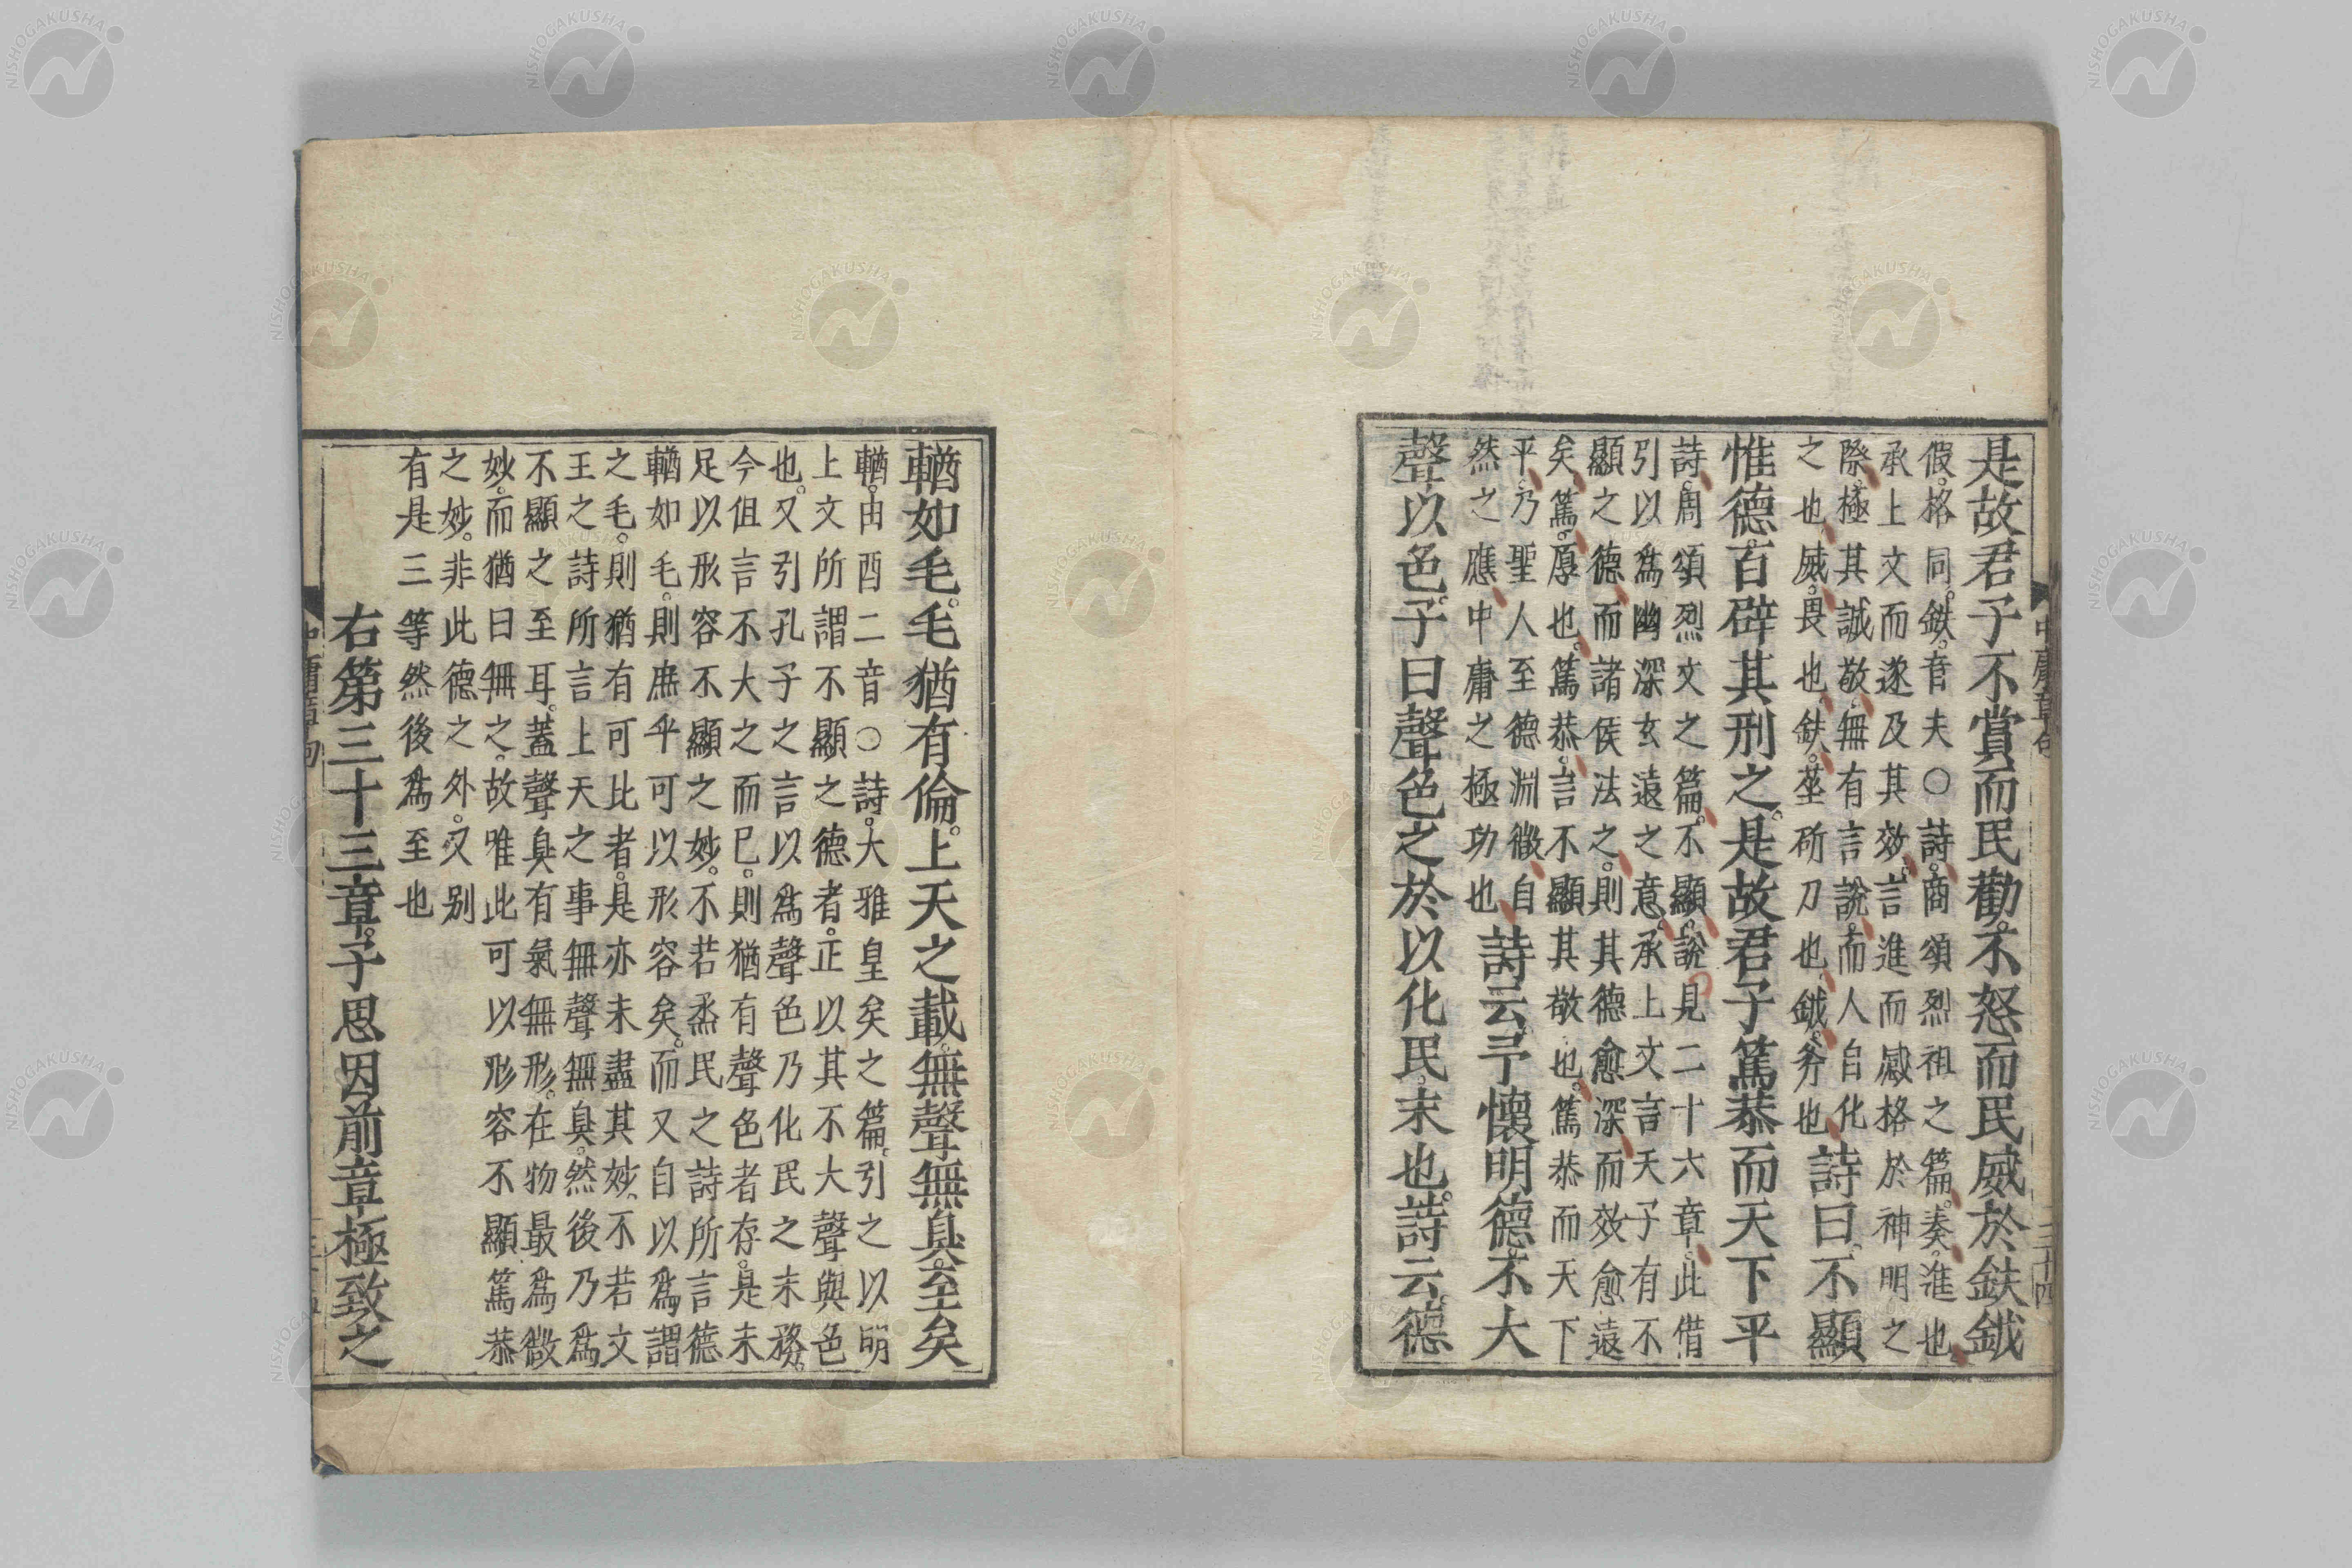 是故君子不賞而民勸。不怒而民威於鈇鉞
假。格同。鈇。音夫〇詩。商頌烈祖之篇。奏。進也
承上文而遂及其效。言進而感格於神明之
際。極其誠敬。無有言說。而人自化
之也。威。畏也。鈇。莝斫刀也。鉞。斧也
詩曰。不顯
惟德。百辟其刑之。是故君子篤恭而天下平
詩。周頌烈文之篇。不顯。說見二十六章。此借
引以爲幽深玄遠之意。承上文言天子有不
顯之德。而諸侯法之。則其德愈深而效愈遠
矣。篤。厚也。篤恭。言不顯其敬也。篤恭而天下
平。乃聖人至德淵微。自
然之應。中庸之極功也
詩云。予懷明德。不大
聲以色。子曰。聲色之於以化民。末也。詩云。德
輶如毛。毛猶有倫。上天之載。無聲無臭。至矣
輶。由酉二音〇詩。大雅皇矣之篇。引之以明
上文所謂不顯之德者。正以其不大聲與色
也。又引孔子之言以爲聲色乃化民之末務。
今但言不大之而已。則猶有聲色者存。是未
足以形容不顯之妙。不若烝民之詩所言德
輶如毛。則庶乎可以形容矣。而又自以爲謂
之毛。則猶有可比者。是亦未盡其妙。不若文
王之詩所言上天之事無聲無臭。然後乃爲
不顯之至耳。蓋聲臭有氣無形。在物最爲微
妙。而猶曰無之。故唯此可以形容不顯篤恭
之妙。非此德之外。又别
有是三等然後爲至也
右第三十三章。子思因前章極致之
中庸章句
三十四
中庸章句